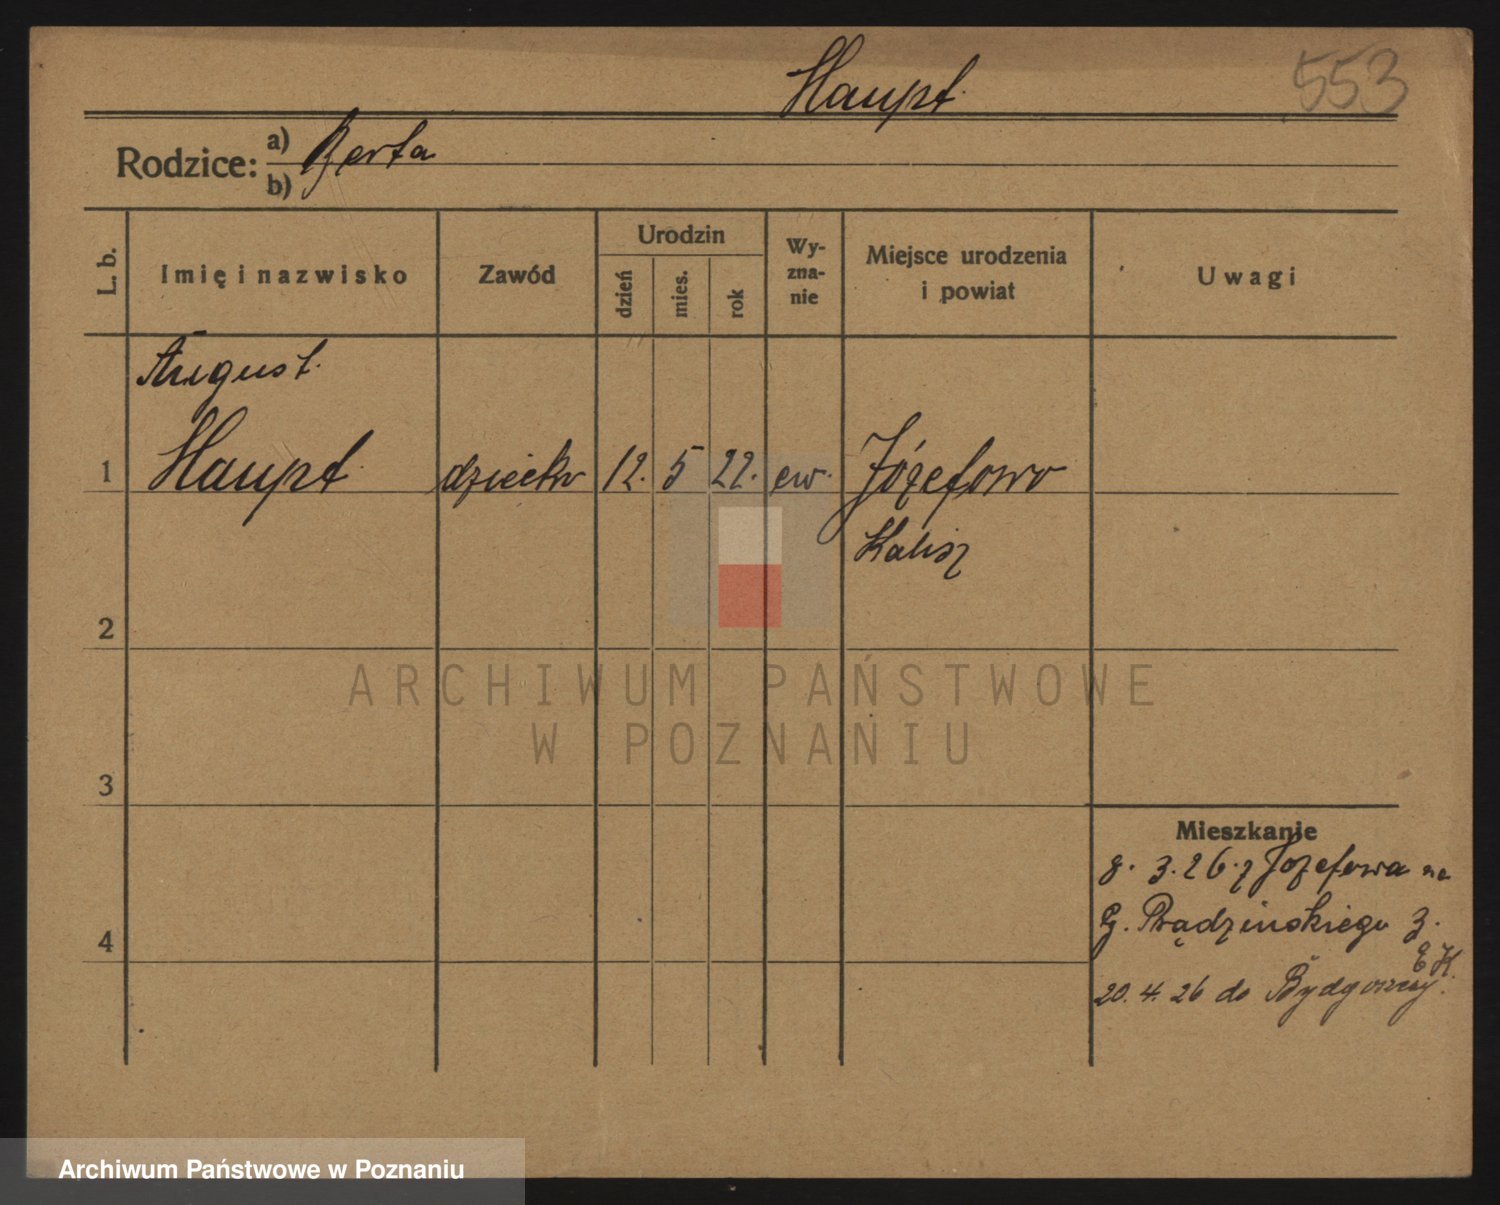 Haupt
553
Rodzice:
a) Berta
b)
L. b.
Imię i nazwisko
Zawód
Urodzin
dzień
mies.
rok
Wy-
zna-
nie
Miejsce urodzenia
i powiat
Uwagi
August
1 Haupt dziecko 12. 5 22. ew. Józefowo
Kalisz
2
3
4
Mieszkanie
8. 3. 26. z Józefowa na
G. Prądzińskiego 3.
E K.
20. 4. 26 do Bydgoszczy
ARCHIWUM PAŃSTWOWE
W POZNANIU
Archiwum Państwowe w Poznaniu